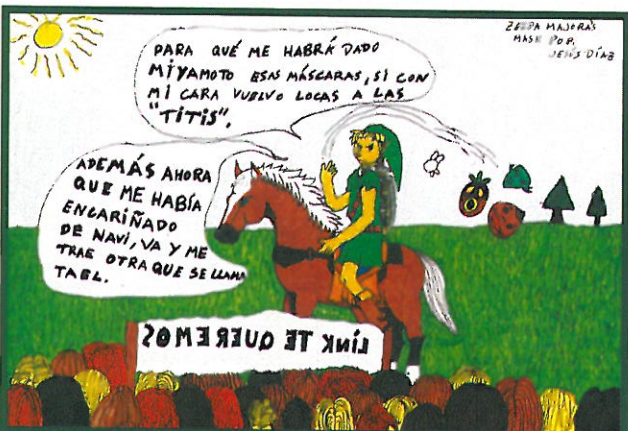 ZELDA MAJORA'S
MASK POR,
JESÚS DÍAZ
PARA QUÉ ME HABRÁ DADO
MIYAMOTO ESAS MÁSCARAS, SI CON
MI CARA VUELVO LOCAS A LAS
"TITIS".
ADEMÁS AHORA
QUE ME HABÍA
ENCARIÑADO
DE NAVI, VA Y ME
TRAE OTRA QUE SE LLAMA
TAEL.
LINK TE QUEREMOS